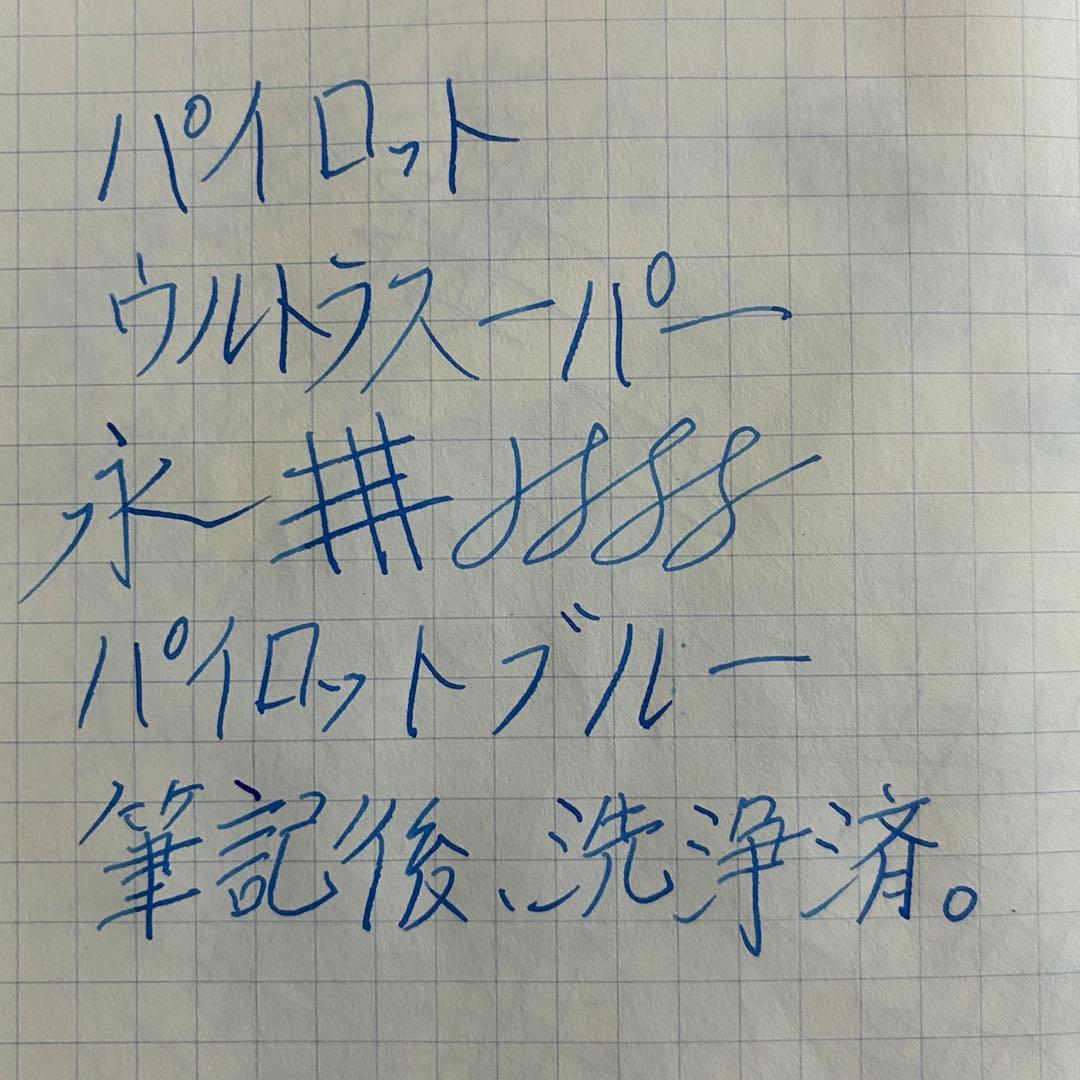 パイロット
ウルトラスーパー
永
パイロットブルー
筆記後、洗浄済。